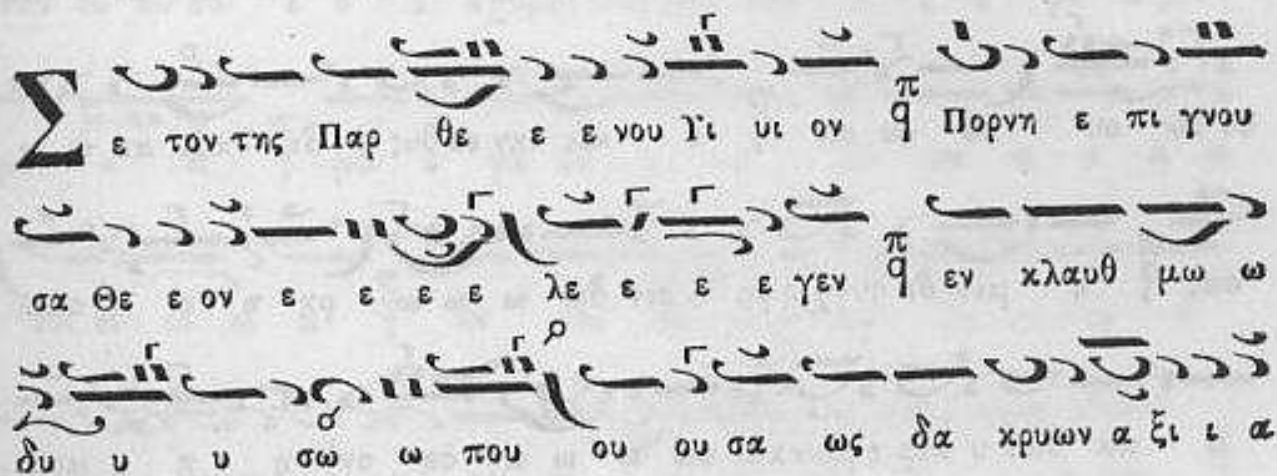 Σ ε τον της Παρ θε ε ε νου Υι υι ον π q Πορνη ε πι γνου
σα Θε ε ον ε ε ε ε λε ε ε ε γεν π q εν κλαυθ μω ω
δυ υ υ υ σω ω που ου ου σα ως δα κρυων α ξι ι α